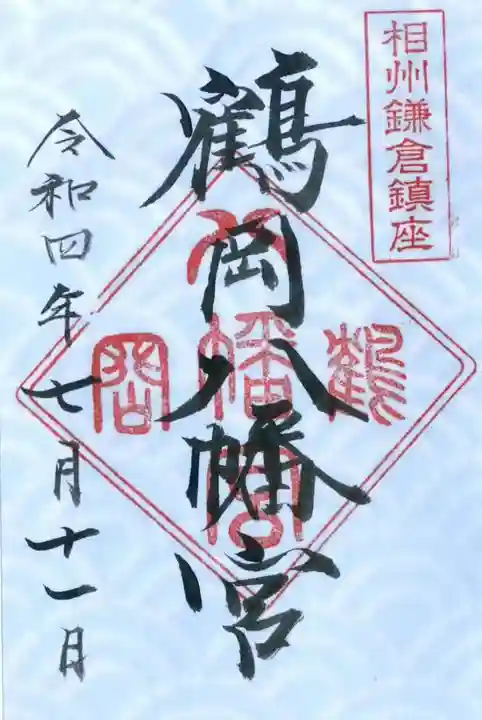 相州鎌倉鎮座
鶴岡八幡宮
鶴岡
八幡宮
令和四年七月十一日